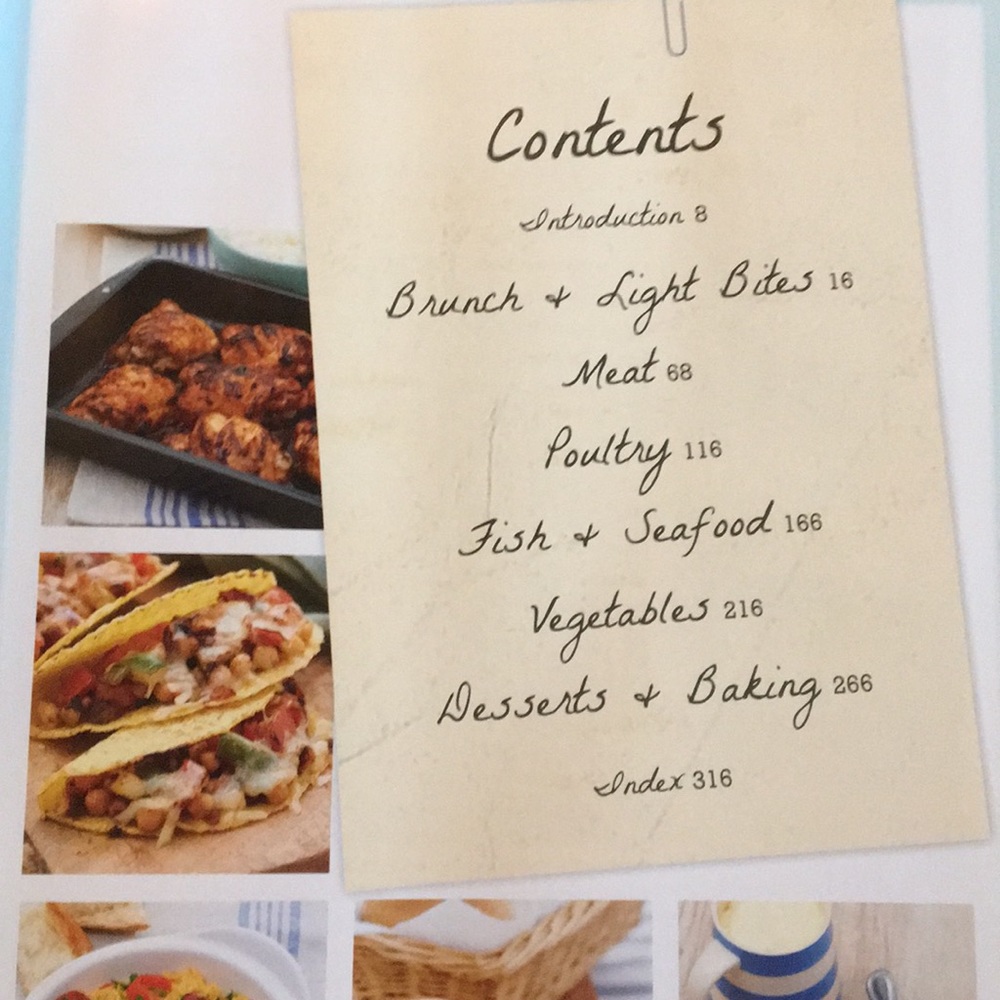 Contents
Introduction 8
Brunch & Light Bites 16
Meat 68
Poultry 116
Fish & Seafood 166
Vegetables 216
Desserts & Baking 266
Index 316